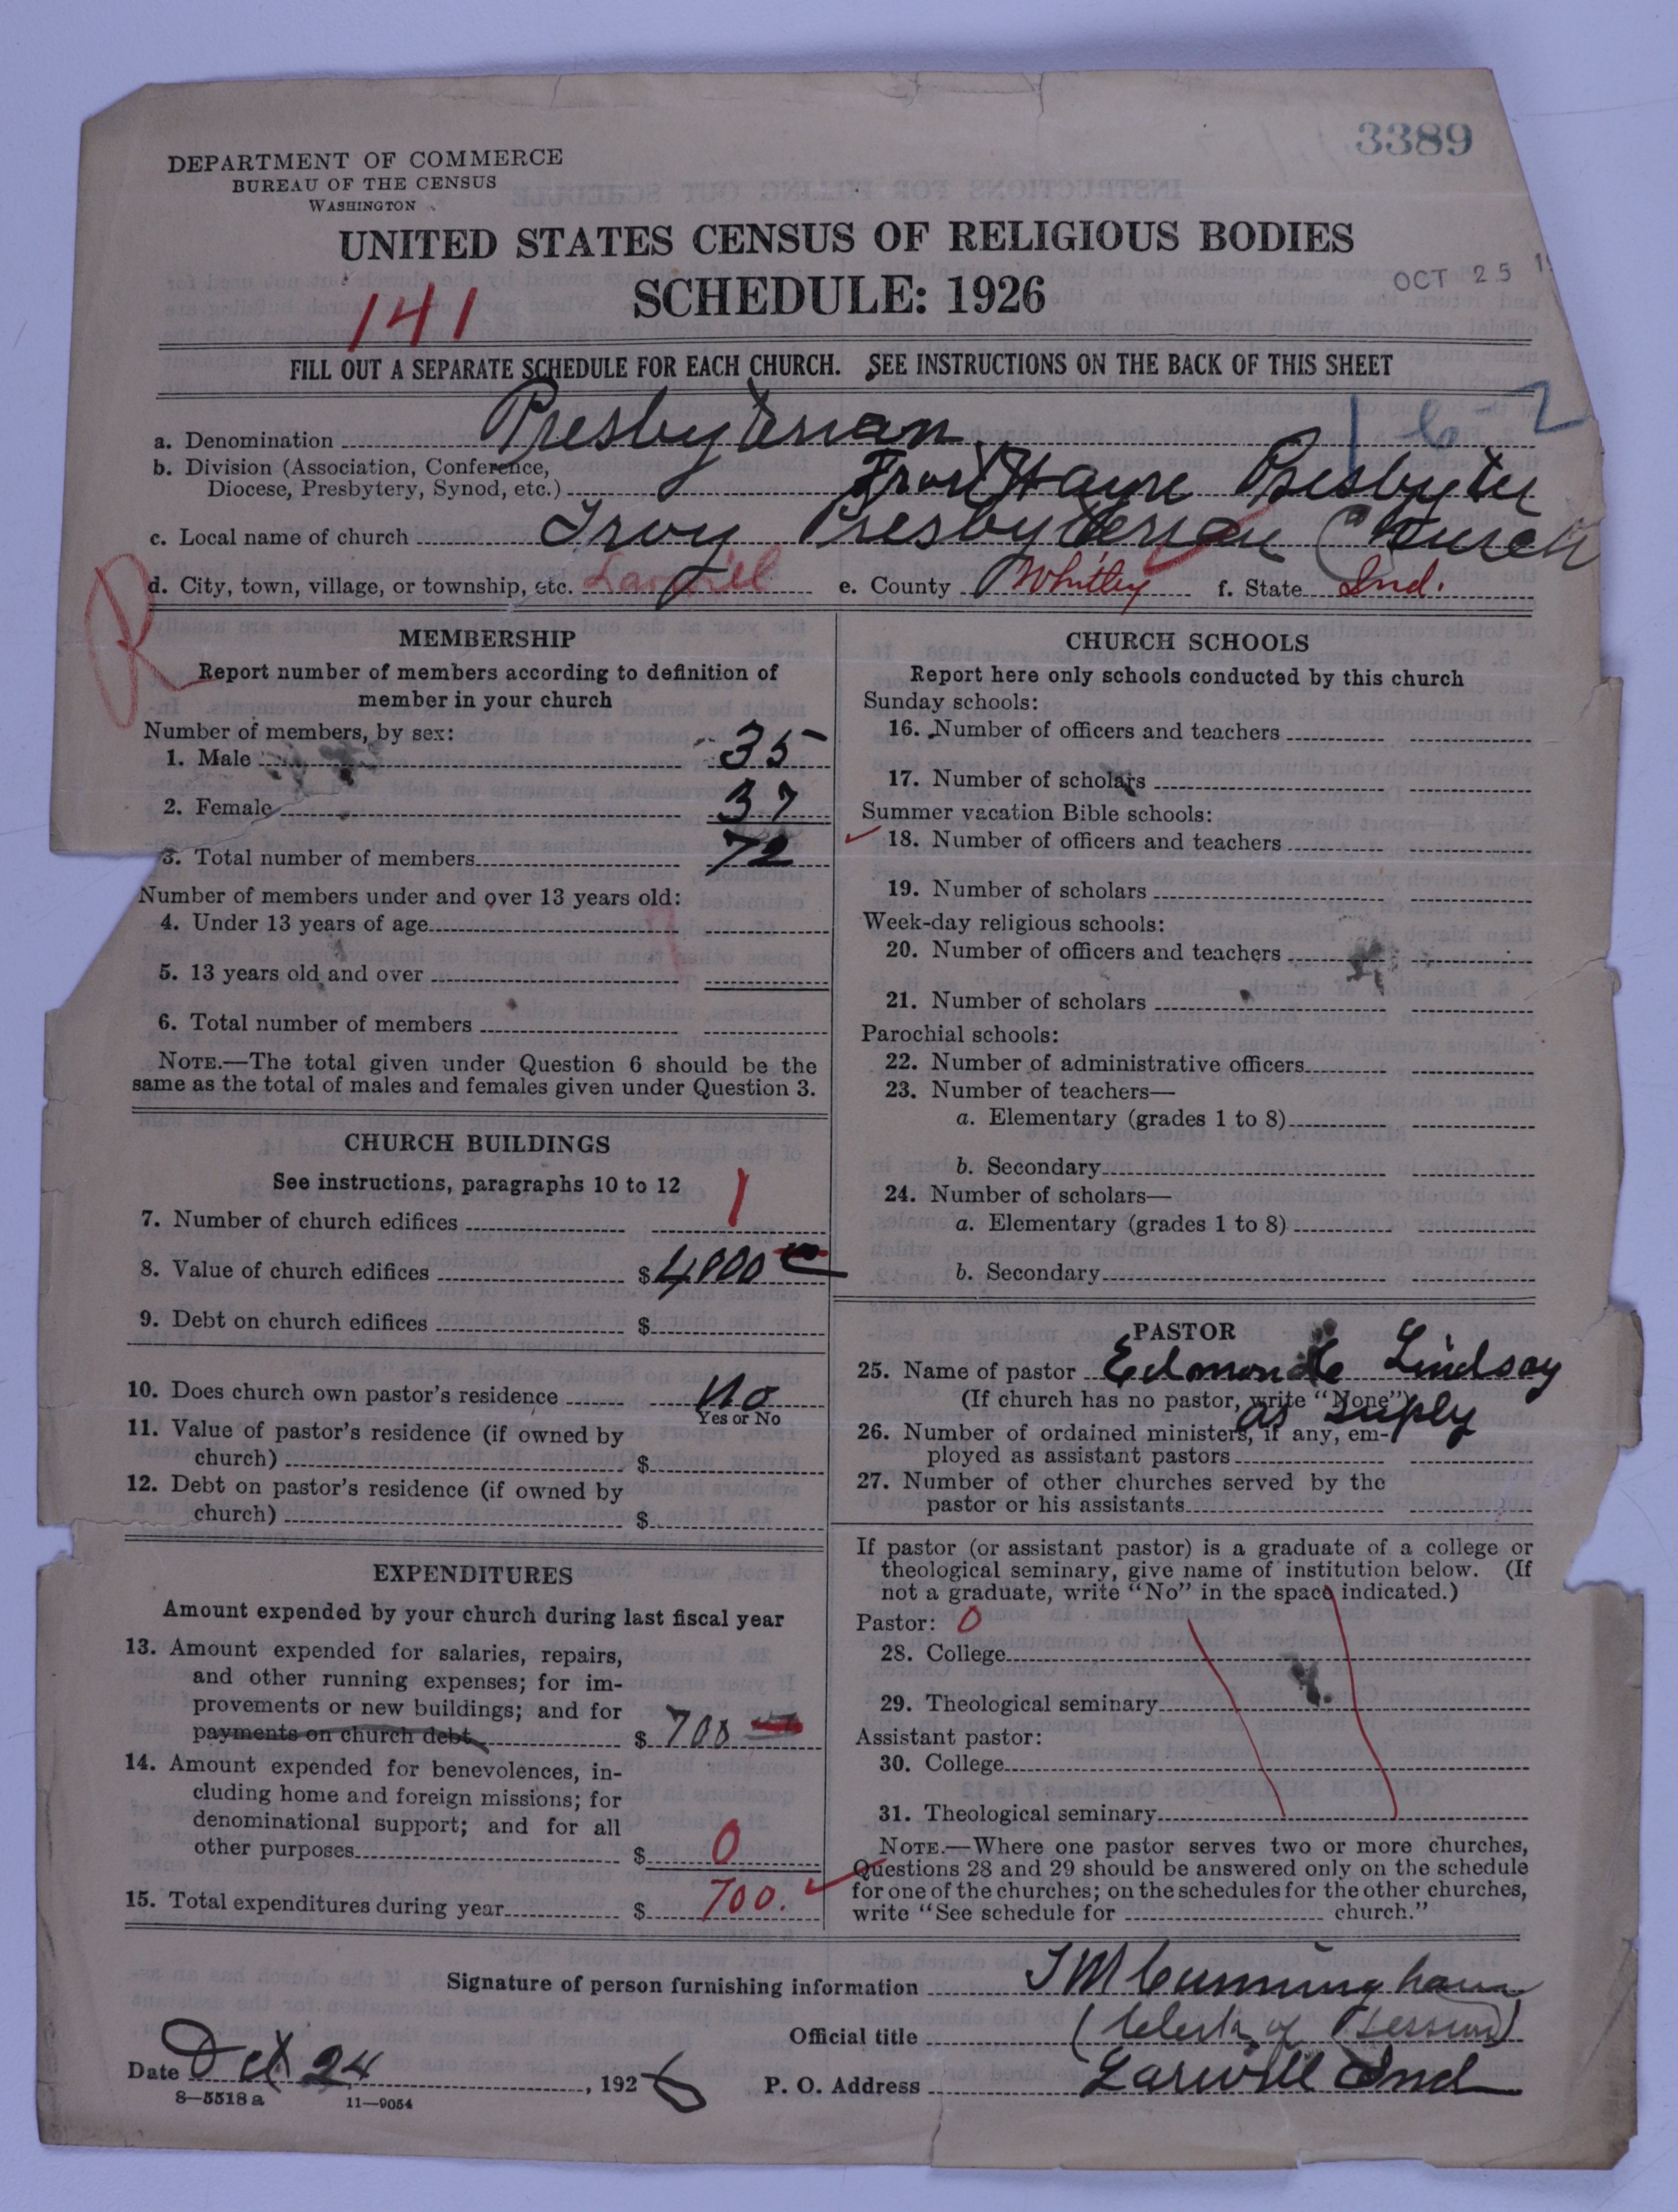 3389
DEPARTMENT OF COMMERCE
BUREAU OF THE CENSUS
WASHINGTON
UNITED STATES CENSUS OF RELIGIOUS BODIES
SCHEDULE: 1926
OCT 25
141
FILL OUT A SEPARATE SCHEDULE FOR EACH CHURCH. SEE INSTRUCTIONS ON THE BACK OF THIS SHEET
a. Denomination Presbyterian
b. Division (Association, Conference,
Diocese, Presbytery, Synod, etc.) Wayne
c. Local name of church Troy Presbyterian Church
d. City, town, village, or township, etc. Larwill e. County Whitley f. State Ind.
R
MEMBERSHIP
Report number of members according to definition of
member in your church
Number of members, by sex:
1. Male 35
2. Female 37
3. Total number of members 72
Number of members under and over 13 years old:
4. Under 13 years of age
5. 13 years old and over
6. Total number of members
NOTE.—The total given under Question 6 should be the
same as the total of males and females given under Question 3.
CHURCH BUILDINGS
See instructions, paragraphs 10 to 12
7. Number of church edifices 1
8. Value of church edifices $4000
9. Debt on church edifices $
10. Does church own pastor's residence No
Yes or No
11. Value of pastor's residence (if owned by
church) $
12. Debt on pastor's residence (if owned by
church) $
EXPENDITURES
Amount expended by your church during last fiscal year
13. Amount expended for salaries, repairs,
and other running expenses; for im-
provements or new buildings; and for
payments on church debt $ 700
14. Amount expended for benevolences, in-
cluding home and foreign missions; for
denominational support; and for all
other purposes $ 0
15. Total expenditures during year $ 700.
CHURCH SCHOOLS
Report here only schools conducted by this church
Sunday schools:
16. Number of officers and teachers
17. Number of scholars
Summer vacation Bible schools:
18. Number of officers and teachers
19. Number of scholars
Week-day religious schools:
20. Number of officers and teachers
21. Number of scholars
Parochial schools:
22. Number of administrative officers
23. Number of teachers—
a. Elementary (grades 1 to 8)
b. Secondary
24. Number of scholars—
a. Elementary (grades 1 to 8)
b. Secondary
PASTOR
25. Name of pastor Lindsay
(If church has no pastor, write "None")
as suply
26. Number of ordained ministers, if any, em-
ployed as assistant pastors
27. Number of other churches served by the
pastor or his assistants
If pastor (or assistant pastor) is a graduate of a college or
theological seminary, give name of institution below. (If
not a graduate, write "No" in the space indicated.)
Pastor: 0
28. College
29. Theological seminary
Assistant pastor:
30. College
31. Theological seminary
NOTE.—Where one pastor serves two or more churches,
Questions 28 and 29 should be answered only on the schedule
for one of the churches; on the schedules for the other churches,
write "See schedule for church."
Signature of person furnishing information Cunningham
Official title (Clerk of Session)
Date Oct 24, 1926 P. O. Address Larwill Ind
8—5518 a 11—9054